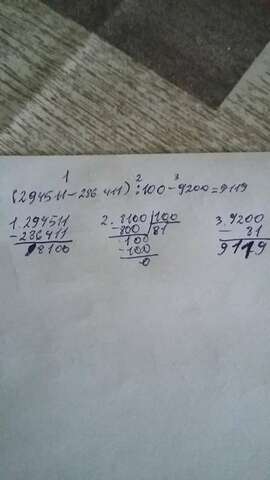 1 2 3
(294511-286411):100-9200=9119
1. 294511 2. 8100 100 3. 9200
-286411 -800 81 - 81
8100 100 9119
-100
0